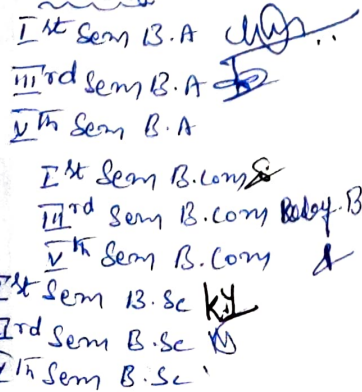 Ist Sem B.A
IIIrd Sem B.A
Vth Sem B.A
Ist Sem B.Com
IIIrd Sem B.Com
Vth Sem B.Com
Ist Sem B.Sc
Ird Sem B.Sc
Vth Sem B.Sc